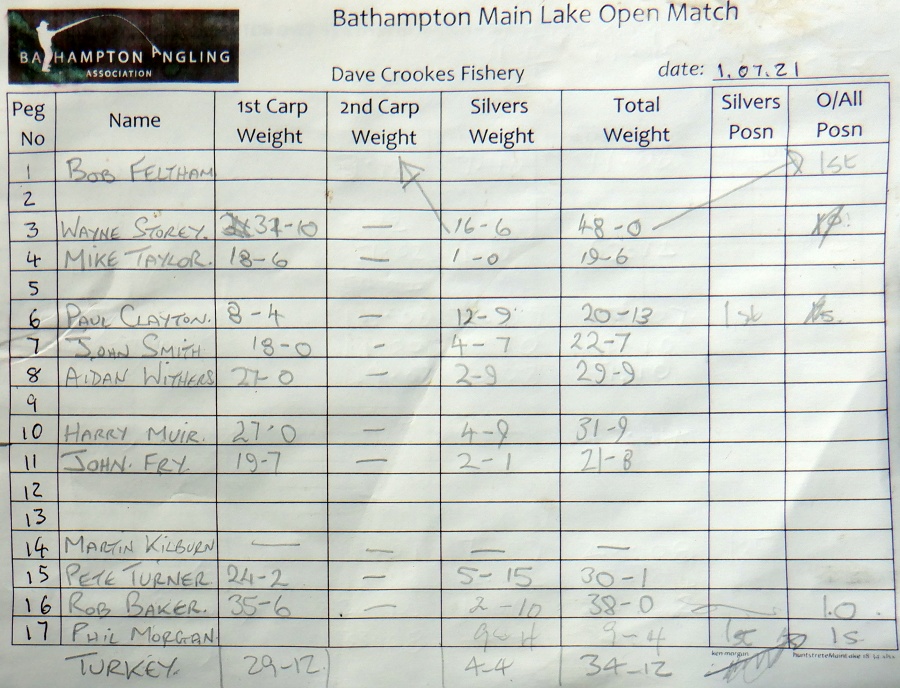 Bathampton Main Lake Open Match
BATHAMPTON ANGLING
ASSOCIATION
Dave Crookes Fishery date: 1.07.21
Peg No Name 1st Carp Weight 2nd Carp Weight Silvers Weight Total Weight Silvers Posn O/All Posn
1 BOB FELTHAM 1st
2
3 WAYNE STOREY. 31-10 — 16-6 48-0
4 MIKE TAYLOR. 18-6 — 1-0 19-6
5
6 PAUL CLAYTON. 8-4 — 12-9 20-13 1st
7 JOHN SMITH 18-0 - 4-7 22-7
8 AIDAN WITHERS 27-0 — 2-9 29-9
9
10 HARRY MUIR. 27-0 — 4-9 31-9
11 JOHN. FRY. 19-7 — 2-1 21-8
12
13
14 MARTIN KILBURN — — — —
15 PETE TURNER 24-2 — 5-15 30-1
16 ROB BAKER. 35-6 — 2-10 38-0 1.0
17 PHIL MORGAN. 9-4 1st 1s
TURKEY. 29-12 4-4 34-12
ken morgan